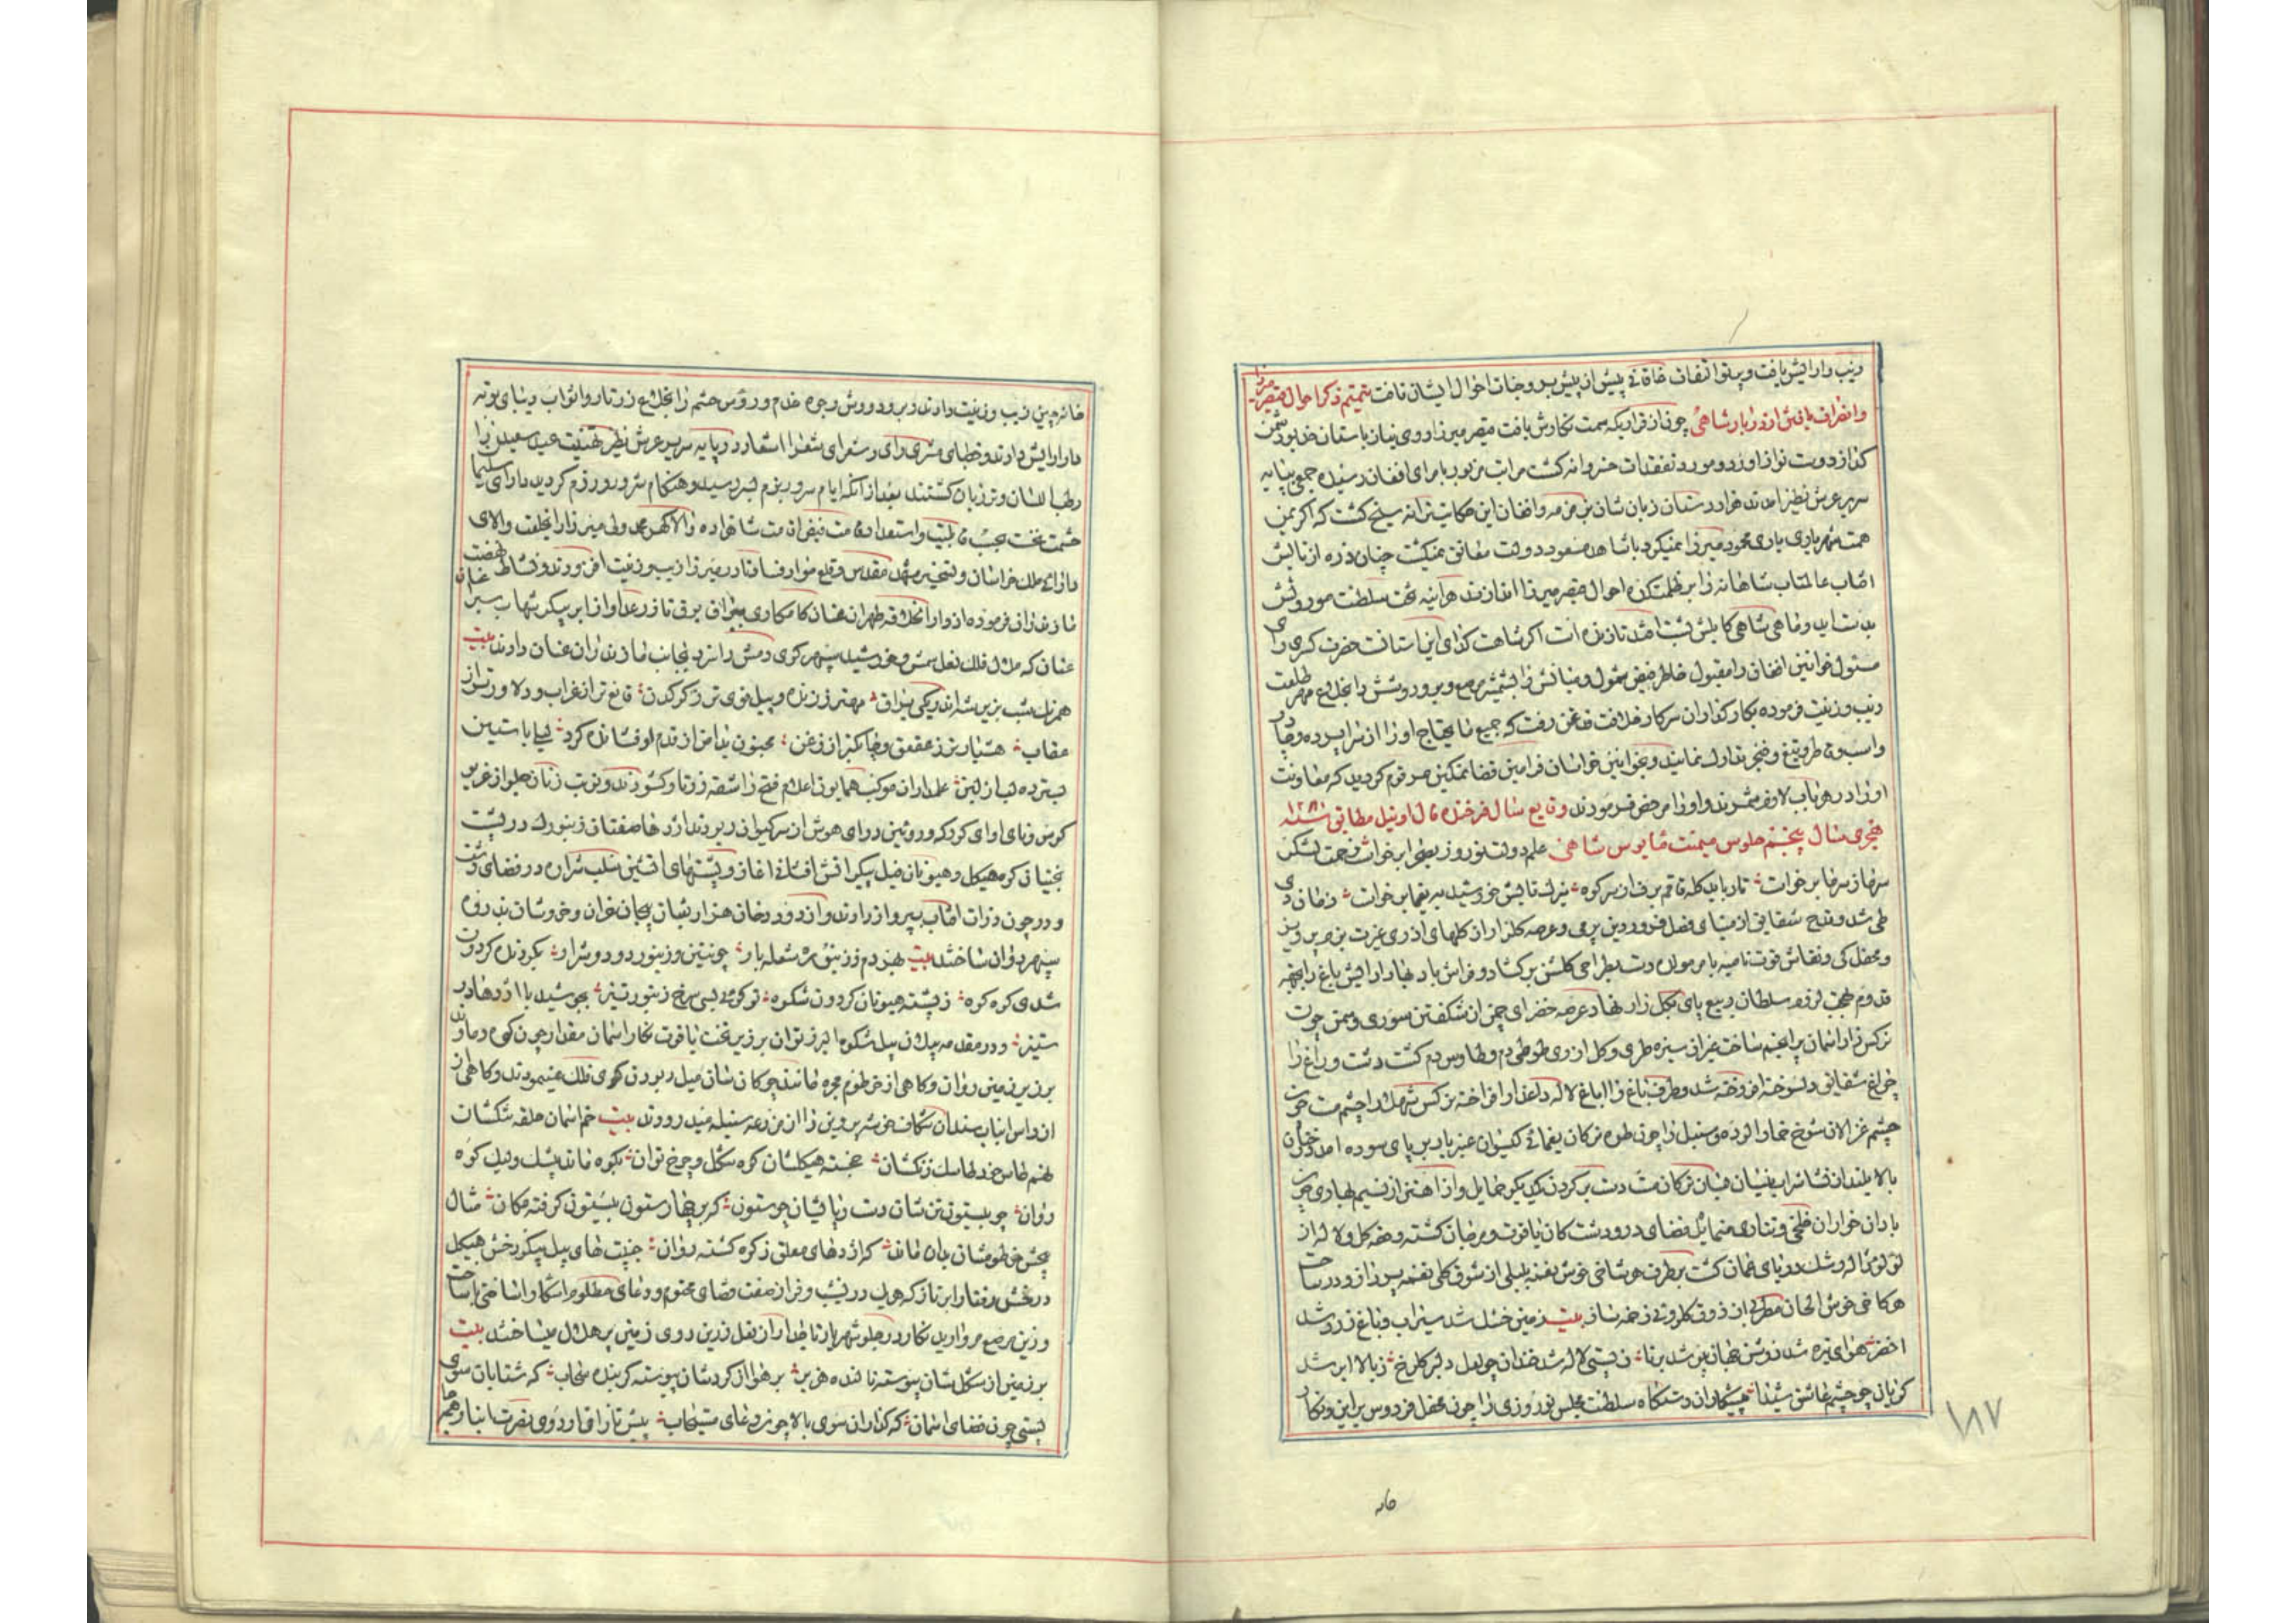 وزیب و آرایش یافت و پرتو اتفاف خاقانی پیش از پیش بر وجنات احوال ایشان تافت تتمیم ذکر احوال قیصر میرزا
وانصراف یافتن از دربار شاهی چون از قراریکه سمت نگارش یافت قیصر میرزا روی نیاز باستان خدیو دشمن
کداز دوست نواز آورد و مورد تفقدات خسروانه کشت مراتب مزبور بامرای افغان رسیده جمعی بپایه
سریر عرش نظیر آمدند هزار دستان زبان شان بزمزمه وافغان این حکایت ترانه سنج کشت که اکر یمن
همت شهریاری یاری محمود میرزا نمیکرد با شاهد مسعود دولت معانق نمیکشت چنان ذره از تابش
افتاب عالمتاب شاهانه را بر ظلمتکده احوال قیصر میرزا اندازند هرآینه تخت سلطنت موروثش
بدست آید و ماهی شاهی کابلش بشست افتد تا زنده است اکر شاهست کدای این آستانست حضرت کسری رای
مسئول خوانین افغان را مقبول خاطر فیض شمول و میانش را بشمشیر مرصع و بر و دوشش را بخلاع مهر طلعت
زیب و زینت فرموده بکارکذاران سرکار خلافت قدغن رفت که جمیع مایحتاج او را از سراپرده و چادر
واسب و خر و تیغ و خنجر تدارک نمایند و بخوانین خراسان فرامین قضا تمکین مرقوم کردید که معاونت
او را در هر باب لازم شمرند و او را مرخص فرمودند وقایع سال فرخنده فال اودئیل مطابق سنه ۱۲۲۰
هجری سال پنجم جلوس میمنت مأنوس شاهی علم دولت نوروز بصحرا برخواست زحمت لشکر
سرما ز سر ما برخواست تا رباید کله قاقم برف از سر کوه یزک تابش خورشید به یغما برخواست زمان دی
طی شد و قدح شقایق از مینای فصل فروردین پر می و عرصه کلزار از کلهای آذری غیرت بزم پرویز
ومحفل کی و نقاش قوت نامیه بامر مولای دست بطراحی کلشن برکشاد و فراش باد بهار آرایش باغ را بجهة
قدوم بهجت لزوم سلطان ربیع پای بکلزار نهاد عرصه خضرای چمن از شکفتن سوری و سمن چون
نرکس زار آسمان پر انجم ساخت غبرا از سبزه طری و کل آذری طوطی دم و طاوس دم کشت دشت و راغ را
چراغ شقایق دلسوخته افروخته شد و طرف باغ را ایاغ لاله داغدار افراخته نرکس شهلا را چشم مست چون
چشم غزالان شوخ خمار آلوده و سنبل را چون طره ترکان یغمائی کیسوان عنبر بار بر پای سوده آمد درختان
بالا بلند از نشاء شراب نیسان بسان ترکان مست دست بر کردن یکدیکر حمایل و از اهتزاز نسیم بهاری چون
باده خواران خلخی و تتاری متمایل فضای در و دشت کان یاقوت و مرجان کشته و صفحه کل و لاله از
لؤلؤ ژاله رشک دریای عمان کشت بر طرف هر شاخی خوش نغمه بلبلی از شوق کلی نغمه پرداز و در ساحت
هر کاخی خوش الحان مطربی از ذوق کلروئی زخمه ساز بیت زمین خشک شد سیراب و باغ زرد شد
اخضر هوای تیره شد روشن جهان پیر شد برنا ز پستی لاله شد خندان چو لعل دلبر کلرخ ز بالا ابر شد
کریان چو چشم عاشق شیدا پیشکاران دستکاه سلطنت مجلس نوروزی را چون محفل فردوس برین و نکار
۱۸۷
خانه چین زیب و زینت دادند و بر و دوش وجوه خدم و رؤس حشم را بخلاع زرتار و اثواب دیبای بوته
دار آرایش دادند و خطبای مشتری رای و شعرای شعرا اشعار در پایه سریر عرش نظیر تهنیت عید سعید را
رطب اللسان و تر زبان کشتند بعد از آنکه ایام سور و بزم بسر رسید و هنکام شر و رزم کردید دارای سلیمان
حشمت تخت بحسب قابلیت و استعداد قامت فیض اقامت شاهزاده والاکهر محمد ولی میرزا را بخلعت والای
دارائی ملک خراسان و تسخیر مشهد مقدس و قلع مواد فساد نادر میرزا زیب و زینت افزودند و نشاط نهضت
مازندران فرموده از دارالخلافه طهران عنان کامکاری ببراق برق تاز رعد آواز ابر پیکر شهاب سیر
عنان که هلال فلک نعل سمش و خورشید سپهر کوی دمش را سزد بجانب مازندران عنان دادند بیت
همرنک شب بزیر شه اندر یکی براق مهتر ز زنده پیل قوی تر ز کرکدن قانع تر از غراب و دلاورتر از
عقاب هشیارتر ز عقعق و چابکتر از زغن مجنون بدامن از قدم او فشانده کرد لیلی باستین
سترده لب از لبن علمداران موکب همایون اعلام فتح را شقه زرتار کشودند و نوبت زنان جلو از غریو
کوس و نای آوای کرد که و روئین در وای هوش از سر کیوان ربودند اژدها صفتان زنبورک در پشت
بختیان کوه هیکل و هیونان فیل پیکر آتش افشانی آغاز و پشتهای آتشین سلب شراره در فضای دشت
و در چون ذرات آفتاب بپرواز آوردند و از دود دخان هزار ثعبان پیچان دوان و خروشان بدروه
سپهر روان ساختند بیت هیزبردم و زنبوره شعله بار چو تنین و زنبور دود و شرار بکردنده کردون
شدی کوه کوه ز پشته هیونان کردون شکوه تو کوئی بسی سرخ زنبور تیز بجوشیده با اژدها در
ستیز و در مقدمه پیلان پیل شکوه البرز توان بر زیر تخت یاقوت نکار آسمان مقدار چون کوه دماوند
بر زبر زمین روان و کاهی از خرطوم مجره مانند چوکان شان میل ربودن کوی فلک مینمودند و کاهی از
از داس انیاب سندان شکاف خوشه پروین را از مزرعه سنبله میدرودند بیت خم آسمان حلقه شکستان
نهم طاس خود طاسک زنکشان خجسته هیکلشان کوه شکل و چرخ توان بکوه ماند پیل و لیک کوه
روان چو بیستون تن شان دست و پا بسان چو ستون که بر چهار ستون بیستون کرفته مکان مثال
بچش خرطومشان بدان ماند که اژدهای معلق ز کوه کشته روان جنیبت های پیل پیکر رخش هیکل
درخش رفتار ابرتاز که هر یک در نشیب و فراز صفت قضای محتوم و دعای مظلوم آشکار داشتی با ساخت
و زین مرصع مروارید نکار در جلو شهریار تاجدار از نعل زرین روی زمین پر هلال میساختند بیت
بر زمین از شکل شان پیوسته تابنده هزبر بر هوا از کردشان پیوسته کرینده سحاب که شتابان سوی
پستی چون قضای آسمان که کذاران سوی بالا چون دعای مستجاب پیش تازان اردوی نصرت انباز و حجر